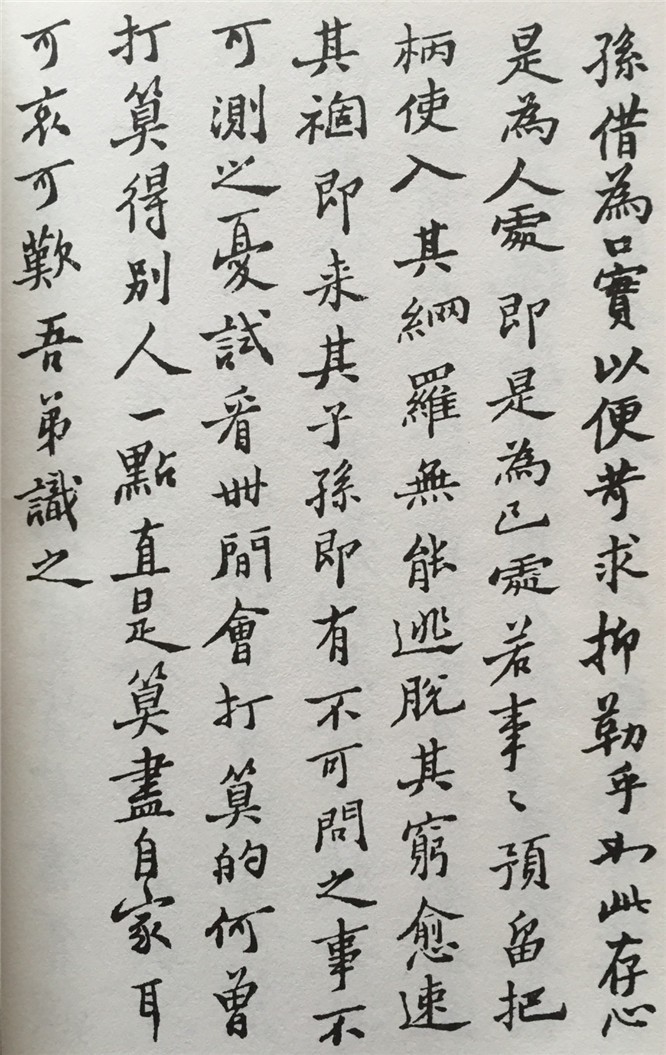 孫借為口實以便苛求抑勒乎如此存心
是為人處即是為己處若事〻預留把
柄使入其網羅無能逃脫其窮愈速
其禍即来其子孫即有不可問之事不
可測之憂試看世間會打算的何曾
打算得別人一點直是算盡自家耳
可哀可歎吾弟識之